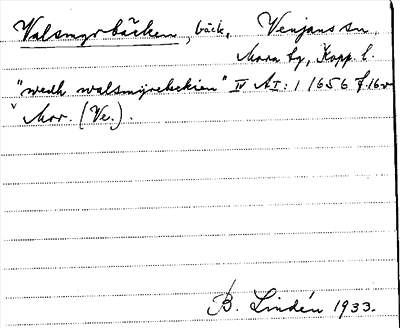 Valsmyrbäcken, bäck, Venjans sn,
Mora by, Kopp. l.
"wedh walsmyrebekien" IV AI:1 1656 f.16v
v Mor. (Ve.).
B. Lindén 1933.